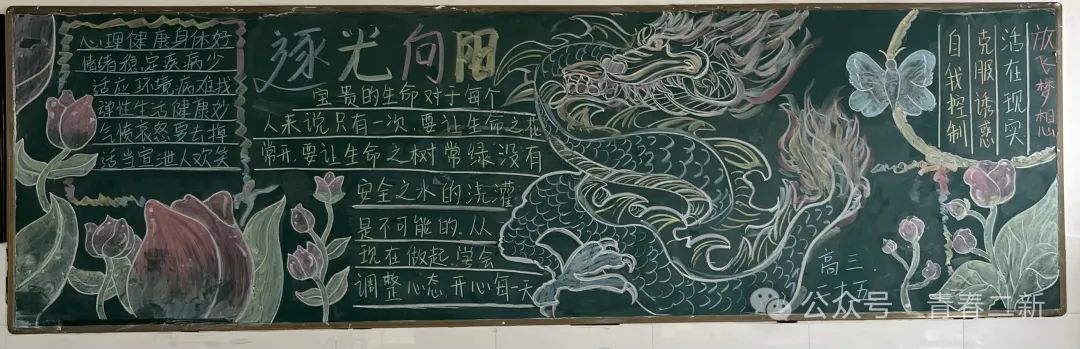 心理健康身体好
情绪稳定疾病少
适应环境病难找
弹性生活健康妙
气愤哀怒要去掉
适当宣泄人欢笑
逐光向阳
宝贵的生命对于每个
人来说只有一次.要让生命之花
常开.要让生命之树常绿.没有
安全之水的浇灌
是不可能的.从
现在做起.学会
调整心态.开心每一天
放飞梦想
活在现实
克服诱惑
自我控制
高三.
二十五
公众号 青春二新